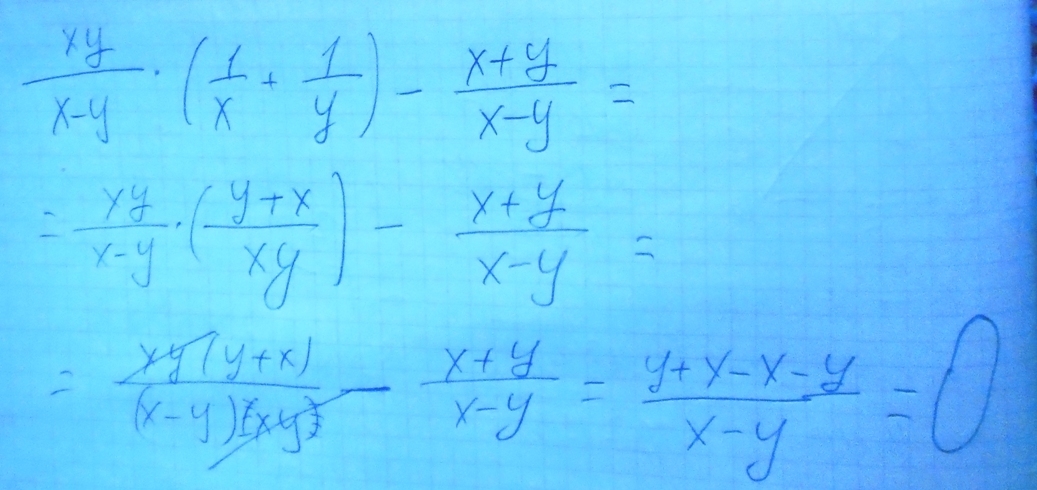 xy/(x-y) · (1/x + 1/y) - (x+y)/(x-y) =
= xy/(x-y) · ((y+x)/(xy)) - (x+y)/(x-y) =
= xy(y+x)/((x-y)(xy)) - (x+y)/(x-y) = (y+x-x-y)/(x-y) = 0